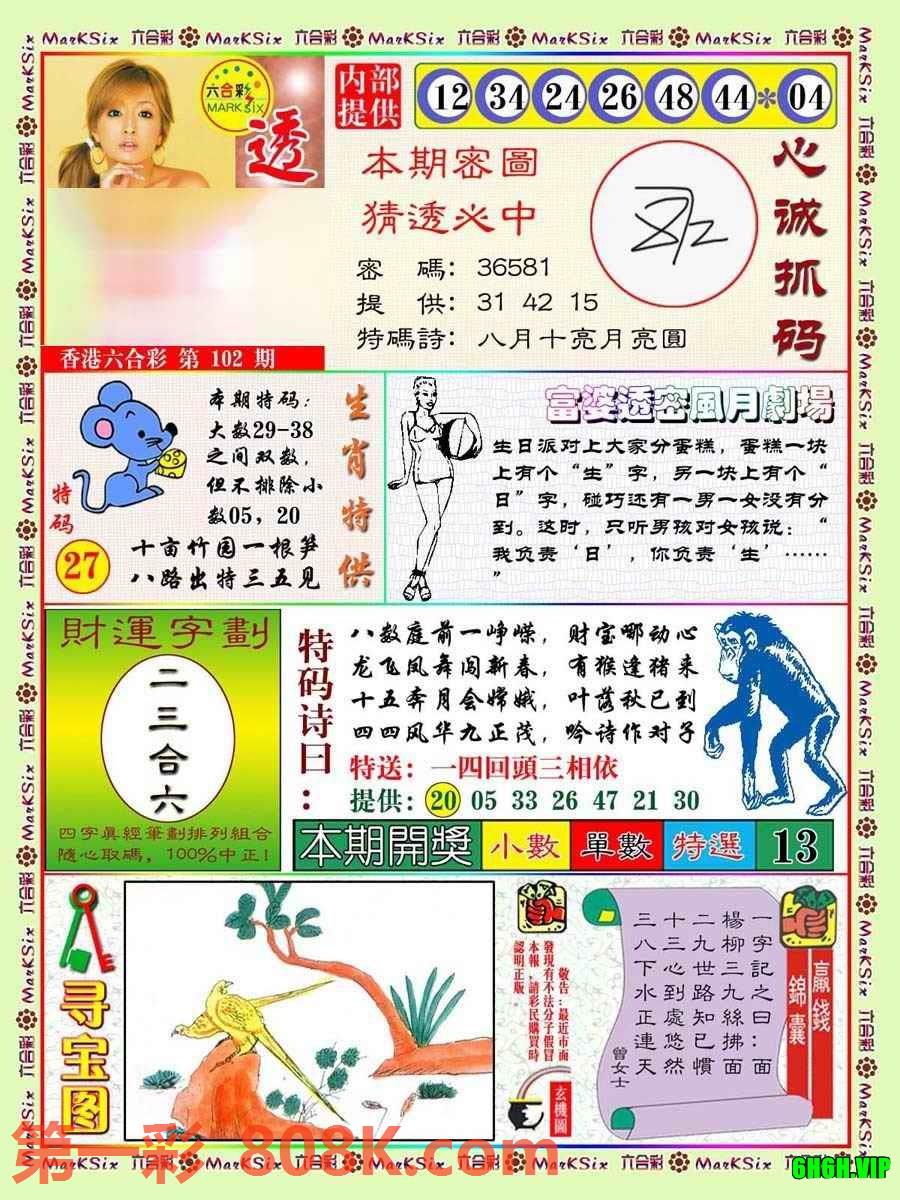 MarKSix 六合彩 MarKSix 六合彩 MarKSix 六合彩 MarKSix 六合彩 MarKSix 六合彩
六合彩
MARK SIX
透
内部
提供
12 34 24 26 48 44 * 04
本期密圖
猜透必中
密 碼：36581
提 供：31 42 15
特碼詩：八月十亮月亮圓
心诚抓码
香港六合彩 第 102 期
本期特码：
大数29-38
之间双数，
但不排除小
数05，20
特码
27
十亩竹园一根笋
八路出特三五见
生肖特供
富婆透密風月劇場
生日派对上大家分蛋糕，蛋糕一块
上有个“生”字，另一块上有个“
日”字，碰巧还有一男一女没有分
到。这时，只听男孩对女孩说：“
我负责‘日’，你负责‘生’……
”
財運字劃
二三合六
四字真經筆劃排列組合
隨心取碼，100%中正！
特码诗曰：
八数庭前一峥嵘，财宝哪动心
龙飞凤舞闯新春，有猴逢猪来
十五奔月会嫦娥，叶落秋已到
四四风华九正茂，吟诗作对子
特送：一四回頭三相依
提供：20 05 33 26 47 21 30
本期開獎 小數 單數 特選 13
寻宝图
敬告：最近市面
發現有不法分子假冒
本報，請彩民購買時
認明正版。
玄機圖
一字記之曰：面
楊柳三九絲拂面
二九世路知已慣
十三心到處悠然
三八下水正連天
曾女士
贏錢
錦囊
第一彩 808K.com
6H6H.VIP
MarKSix 六合彩 MarKSix 六合彩 MarKSix 六合彩 MarKSix 六合彩 MarKSix 六合彩